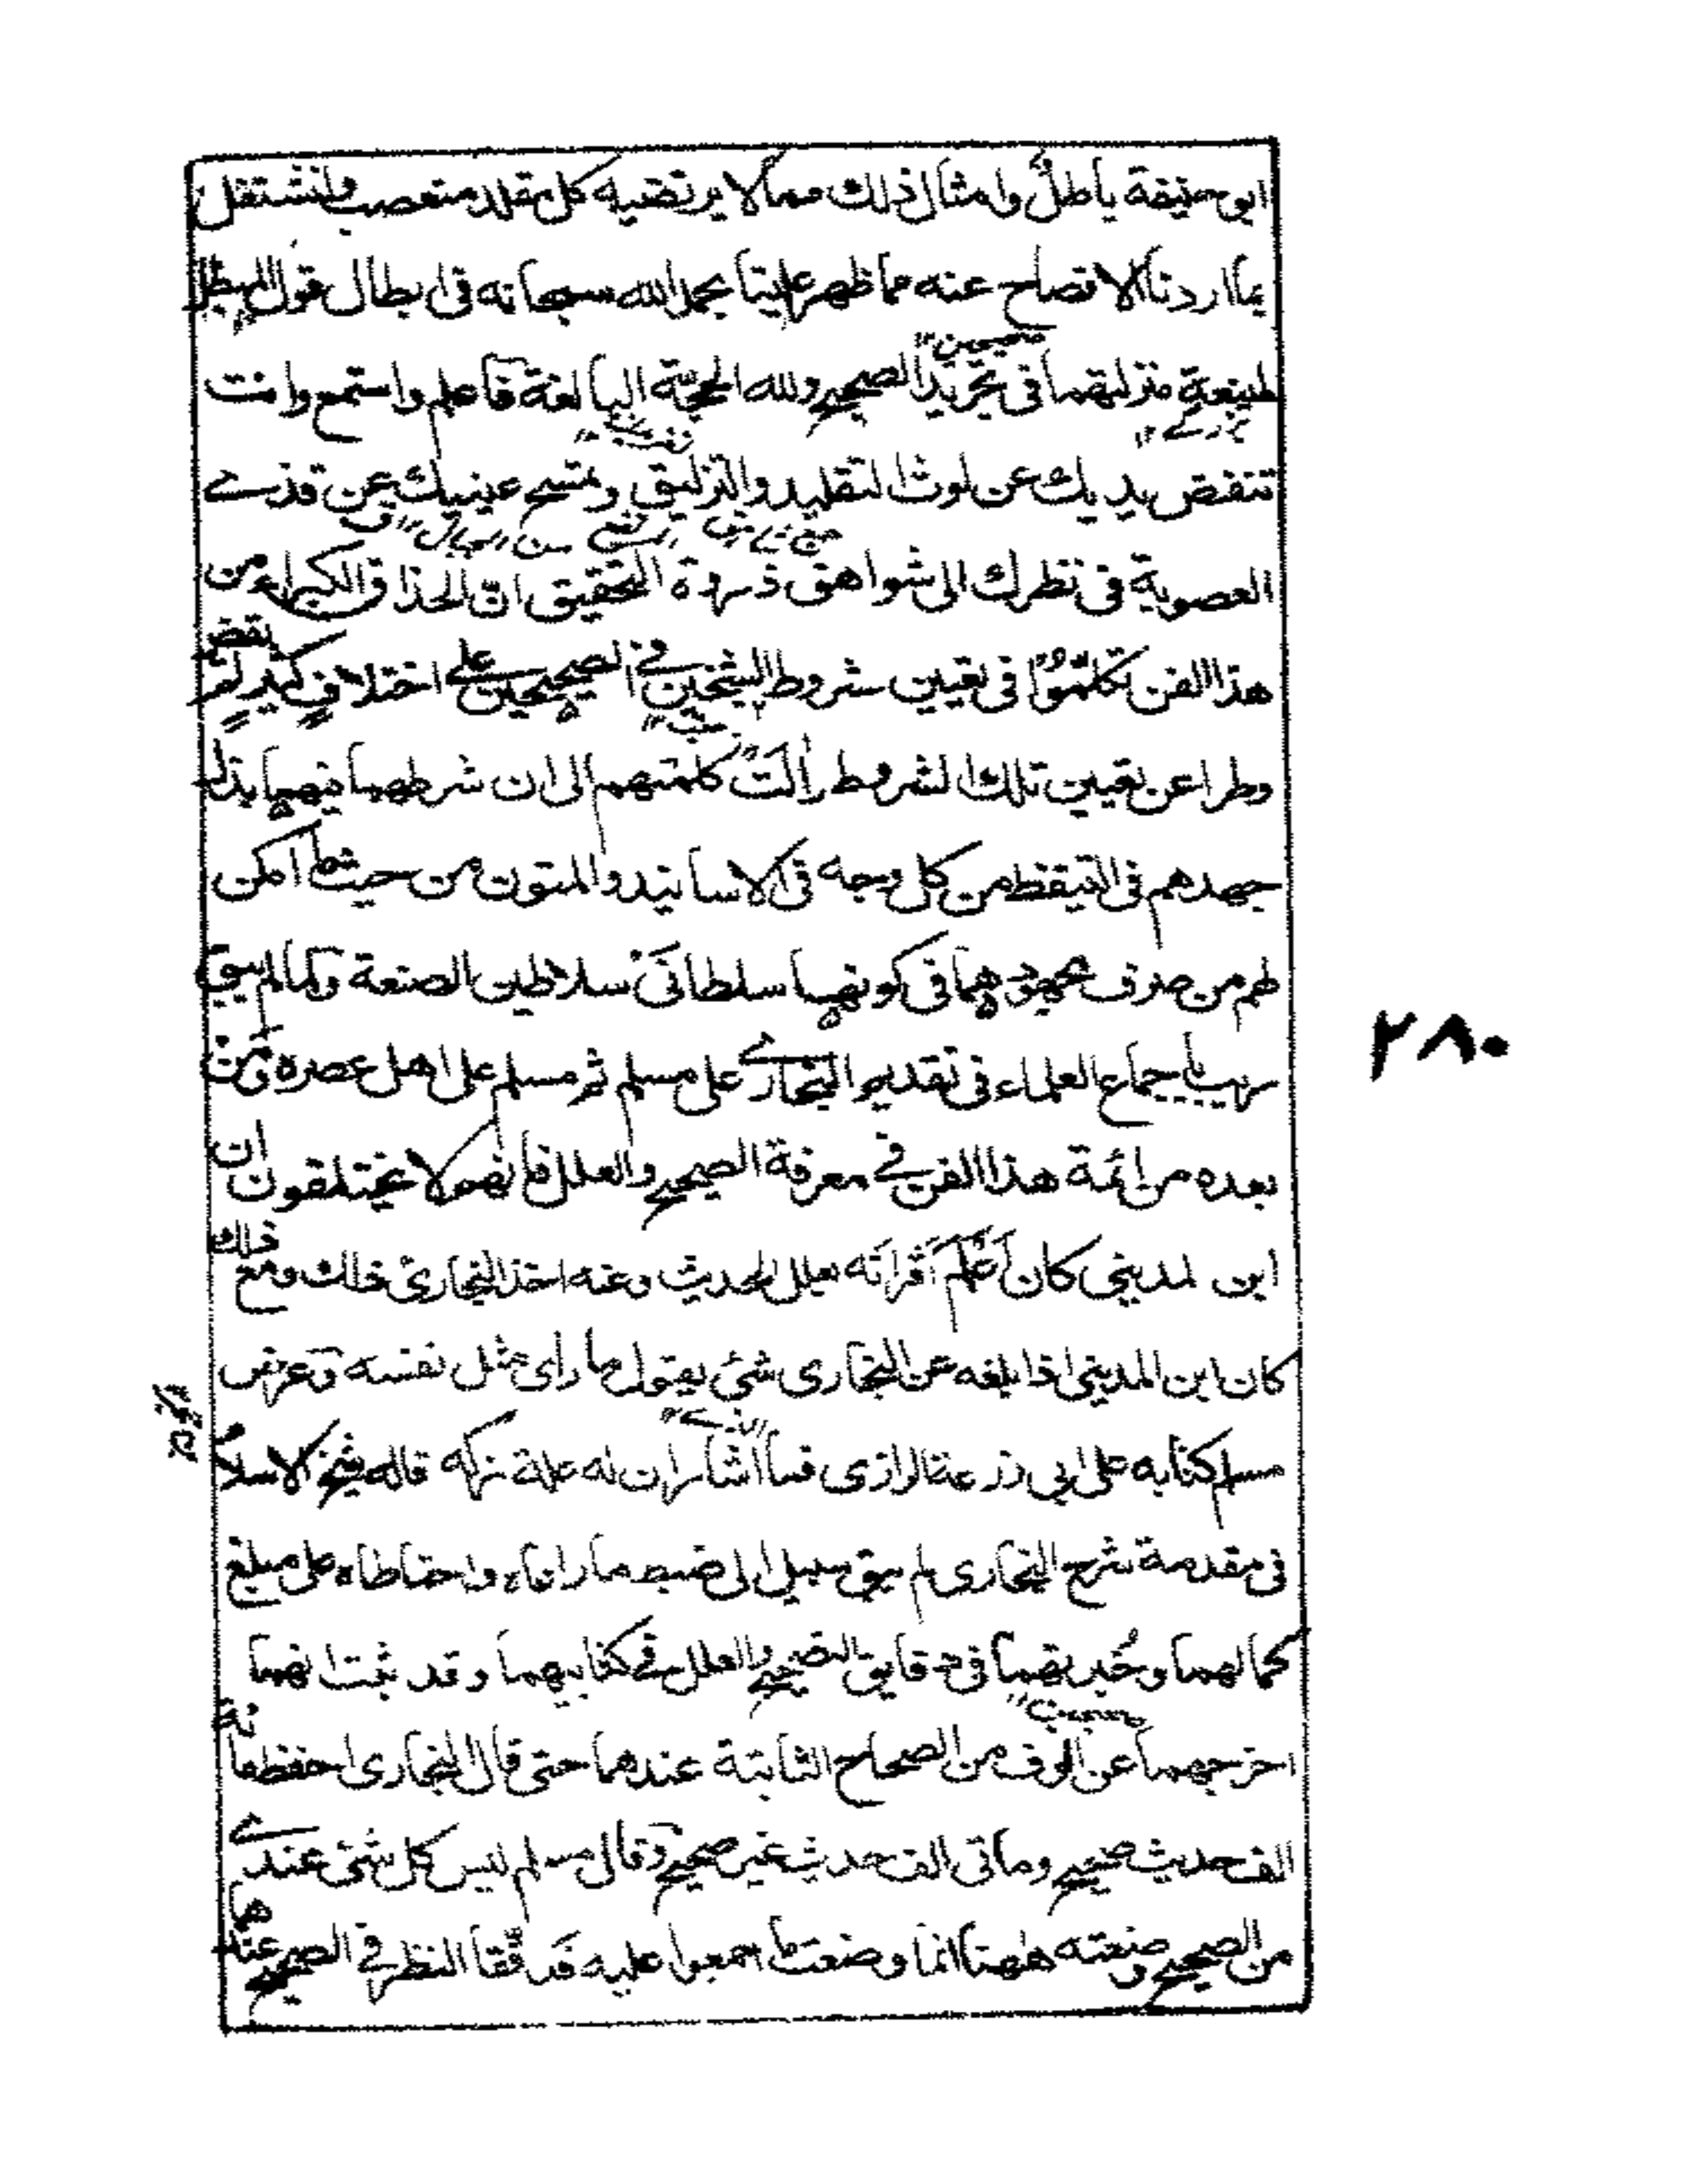 ابو حنيفة باطل وامثال ذلك مما لا يرتضيه كل مقلد متعصب ولنشتغل
بما اردنا الافصاح عنه مما ظهر علينا بحمد الله سبحانه فى ابطال قول المبطل
لمنيعة منزلتهما فى تجريد الصحيح ولله الحجة البالغة فاعلم واستمع وانت
تنفض يديك عن لوث التقليد والتزليق وتمسح عينيك عن قذى
العصوبة فى نظرك الى شواهق ذروة التحقيق ان الحذاق الكبراء من
هذا الفن تكلموا فى تعيين شروط الشيخين فى الصحيحين على اختلاف كثير
وطرا عن تعيين تلك الشروط الت كلمتهم الى ان شرطهما فيهما بذل
جهدهم فى التيقظ من كل وجه فى الاسانيد والمتون من حيث ما امكن
لهم من صرف مجهودهما فى كونهما سلطانى سلاطين الصنعة ولما لم يبق
ريب باجماع العلماء فى تقديم البخارى على مسلم ثم مسلم على اهل عصره ومن
بعده من ائمة هذا الفن فى معرفة الصحيح والعلل فانهم لا يختلفون ان
ابن المدينى كان اعلم اقرانه بعلل الحديث وعنه اخذ البخارى ذلك ومع ذلك
كان ابن المدينى اذا بلغه عن البخارى شئ يقول ما راى مثل نفسه وعرض
مسلم كتابه على ابى زرعة الرازى فما اشار ان له علة تركه قاله شيخ الاسلام
فى مقدمة شرح البخارى لم يبق سبيل الى ضبط ما راماه واحتاطاه على مبلغ
كمالهما وخبرتهما فى دقايق التصحيح والعلل فى كتابيهما وقد ثبت انهما
اخرجهما عن الوف من الصحاح الثابتة عندهما حتى قال البخارى احفظ مائة
الف حديث صحيح ومأتى الف حديث غير صحيح وقال مسلم ليس كل شئ عندى
من الصحيح وضعته ههنا انما وضعت ما اجمعوا عليه فدققا النظر فى الصحيح عندهما
٢٨٠